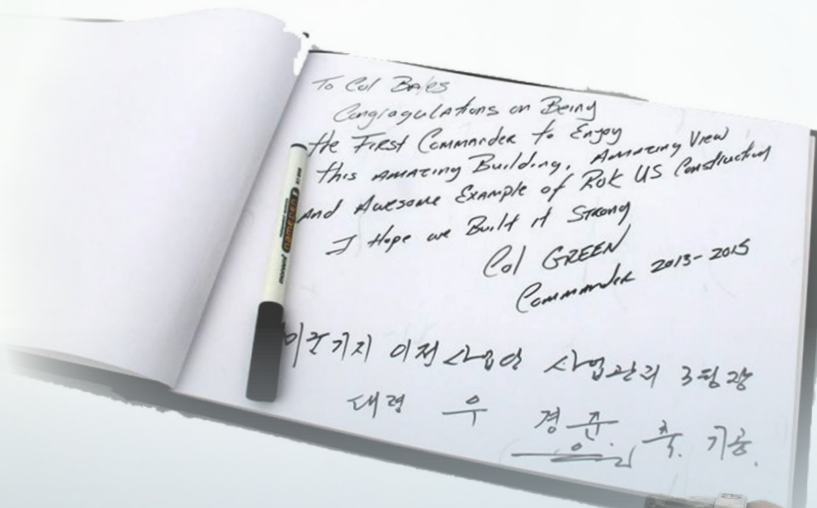 To Col Bales
Congragulations on Being
the First Commander to Enjoy
this Amazing Building, Amazing View
And Awesome Example of ROK US Construction
I Hope we Built it Strong
Col GREEN
Commander 2013-2015
미군기지 이전사업단 사업관리 3팀장
대령 우 경 준 축. 기공.